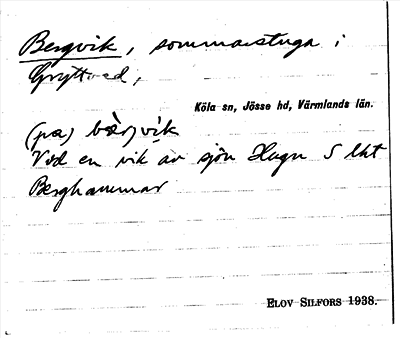 Bergvik, sommarstuga i
Gryttved,
Köla sn, Jösse hd, Värmlands län.
(på) bær)vik
Ved en vik av sjön Hugn S lkt
Berghammar
ELOV SILFORS 1938.